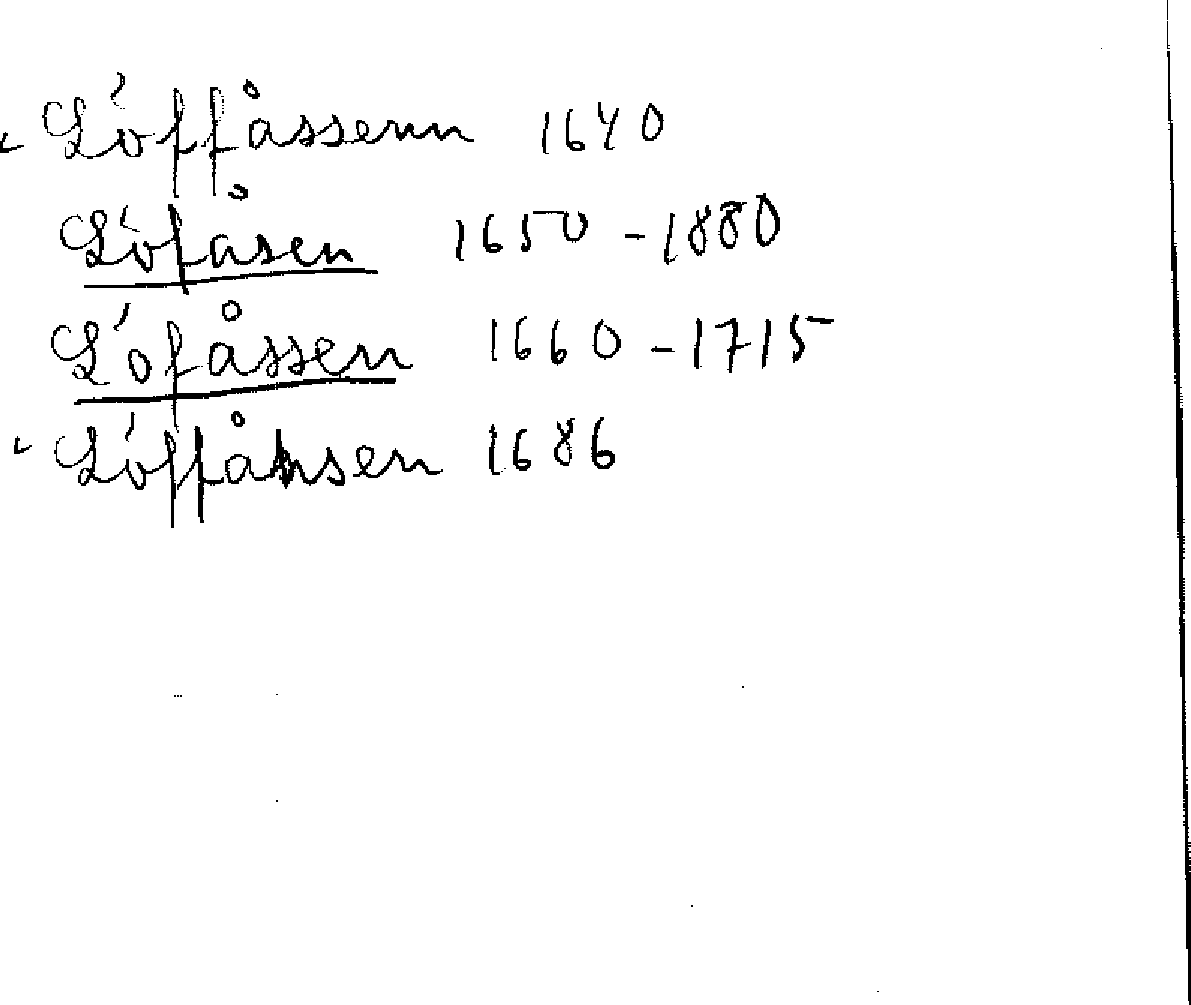 Löffåssenn 1640
Löfåsen 1650 - 1880
Löfåssen 1660 - 1715
Löffåhsen 1686